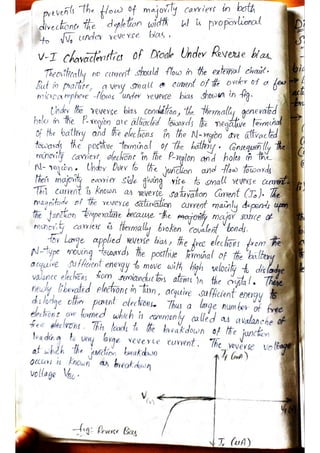 prevents the flow of majority carriers in both
directions the depletion width W is proportional
to √Vr under reverse bias.
V-I characteristics of Diode Under Reverse bias
Theoritically no current should flow in the external circuit.
But in practice, a very small a current of the order of a few
microamphere flows under reverse bias shown in fig.
Under the reverse bias condition, the thermally generated
holes in the P-region are attracted towards the negative terminal
of the battery and the electrons in the N-region are attracted
towards the positive terminal of the battery. Consequently the
minority carriers, electrons in the P-region and holes in the
N-region. Under Over to the junction and flow towards
their majority carrier side giving rise to small reverse current.
This current is known as reverse saturation current (I₀). The
magnitude of the reverse saturation current mainly depends upon
the junction temperature because the majority major source of
minority carriers is thermally broken covalent bonds.
for large applied reverse bias, the free electrons from the
N-type moving towards the positive terminal of the battery
acquire sufficient energy to move with high velocity to dislodge
valence electrons from semiconductor atoms in the crystal. These
newly liberated electrons in turn, acquire sufficient energy to
dislodge other parent electrons. Thus a large number of free
electrons are formed which is commonly called as avalanche of
free electrons. This leads to the breakdown of the junction
leading to very large reverse current. The reverse voltage
at which the junction breakdown
occurs is known as breakdown
voltage
(mA)
fig: Reverse Bias
(uA)